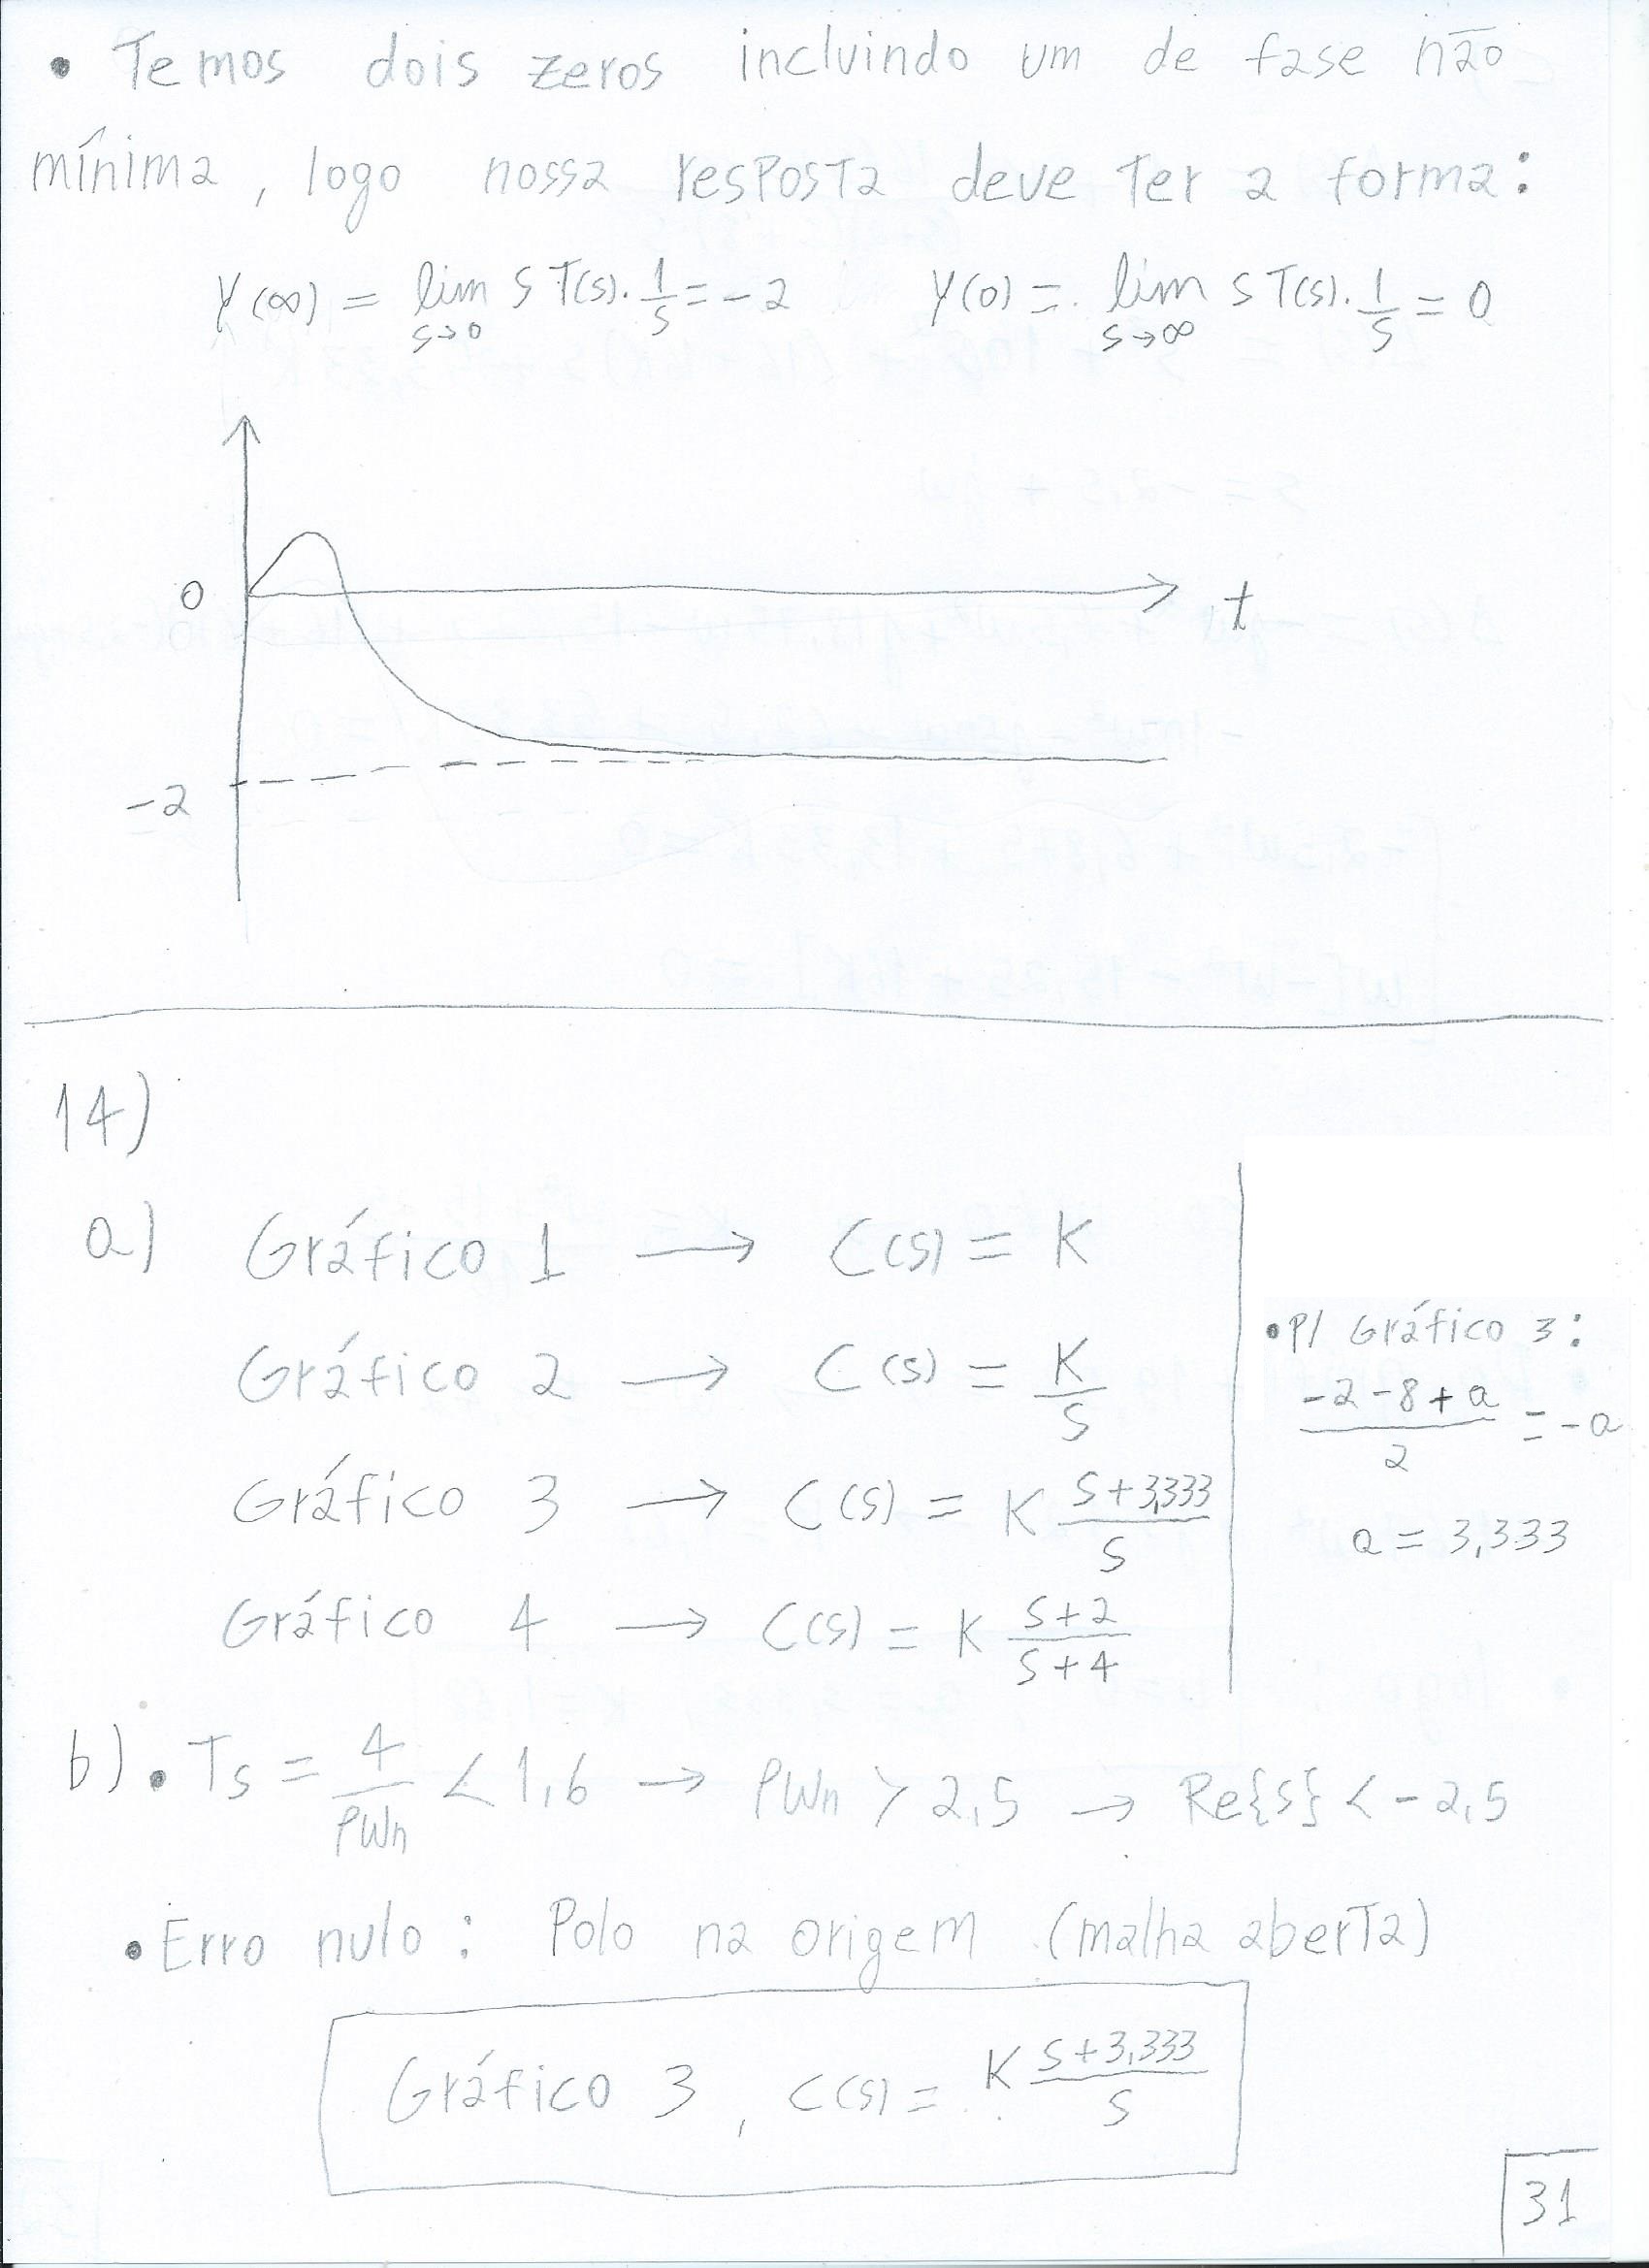 • Temos dois zeros incluindo um de fase não
mínima, logo nossa resposta deve ter a forma:
Y(∞) = lim s→0 S T(s). 1/s = -2    Y(0) = lim s→∞ S T(s). 1/s = 0
0
t
-2
14)
a) Gráfico 1 → C(s) = K
Gráfico 2 → C(s) = K/S
Gráfico 3 → C(s) = K (S+3,333)/S
Gráfico 4 → C(s) = K (S+2)/(S+4)
• P/ Gráfico 3:
(-2-8+a)/2 = -a
a = 3,333
b) • Ts = 4/ρWn < 1,6 → ρWn > 2,5 → Re{s} < -2,5
• Erro nulo: Polo na origem (malha aberta)
Gráfico 3, C(s) = K (S+3,333)/S
31